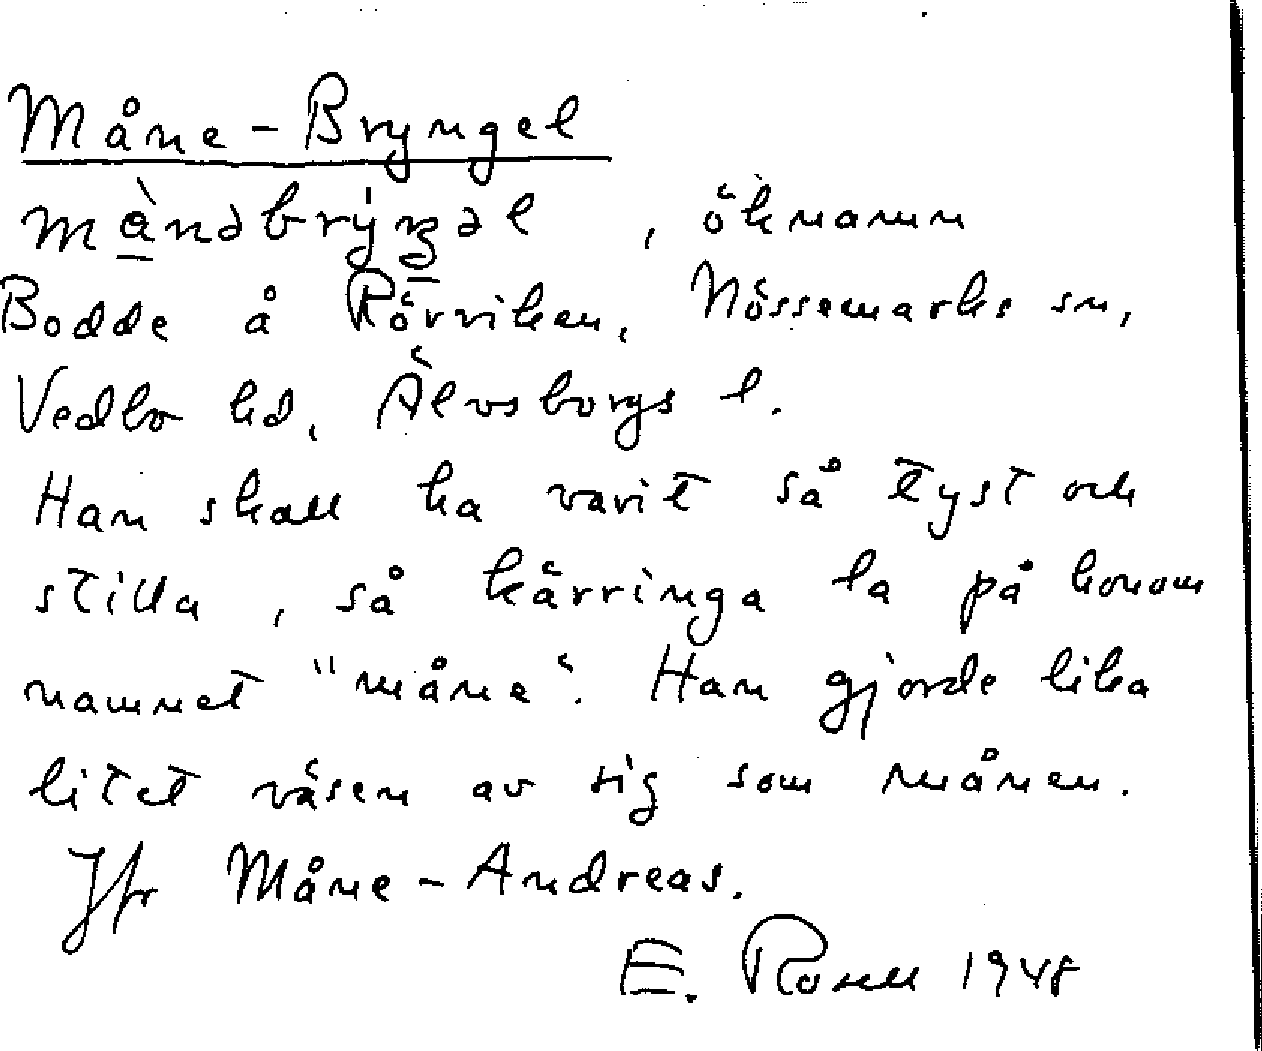 Måne-Bryngel
, öknamn
Bodde å Rörviken, Nössemarks sn,
Vedbo hd, Älvsborgs l.
Han skall ha varit så tyst och
stilla, så kärringa la på honom
namnet "måne". Han gjorde lika
litet väsen av sig som månen.
Jfr Måne-Andreas.
E. Rosell 1948